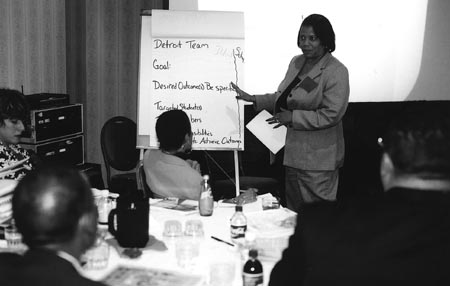 Detroit Team
Goal:
Desired Outcome(s) Be specific
Targeted Students
bers
sibilities
Achieve Outcomes